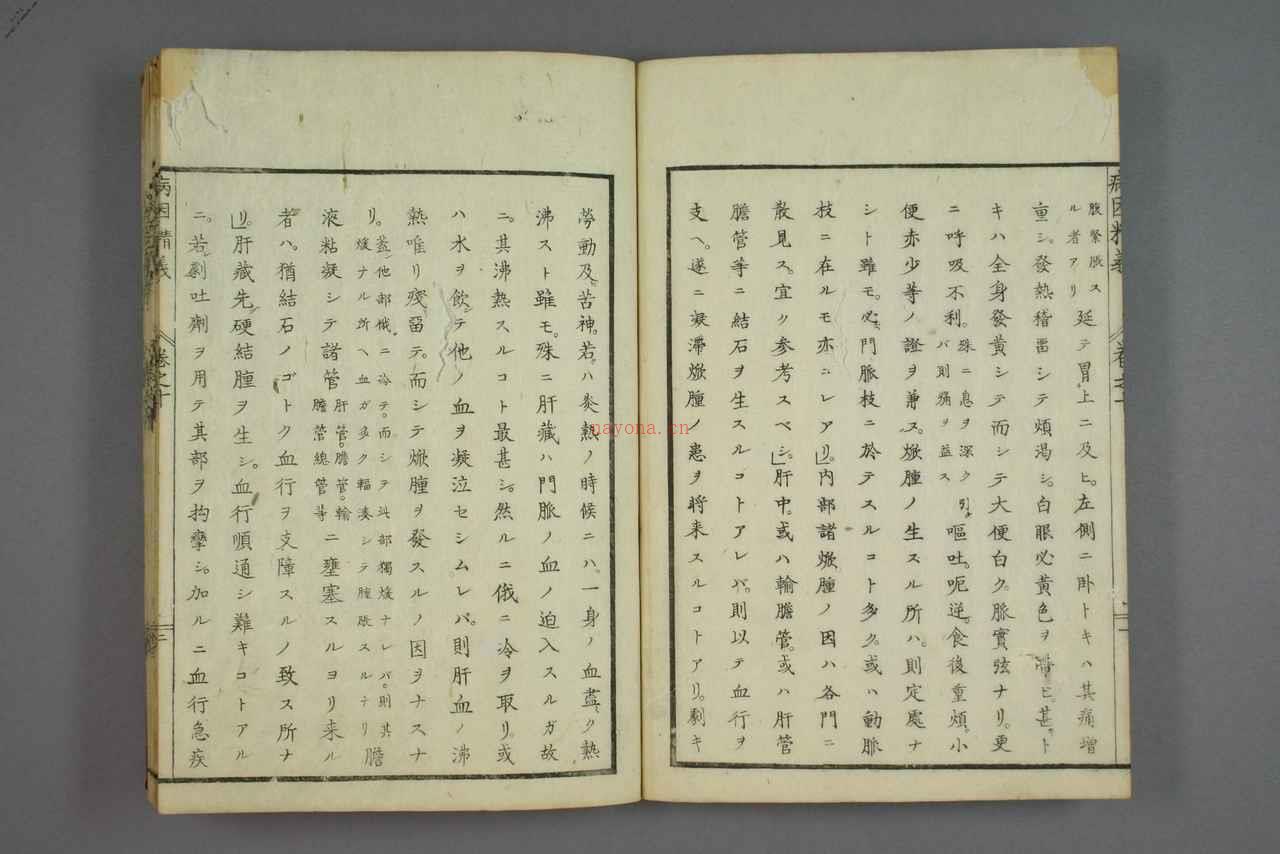 腹緊脹スル者アリ延テ胃上ニ及ヒ。左側ニ臥トキハ其痛増
重シ。發熱稽畱シテ煩渇シ。白眼必黄色ヲ帶ヒ。甚シト
キハ全身發黄シテ而シテ大便白ク。脈實弦ナリ。更
ニ呼吸不利。殊ニ息ヲ深ク引ハ則痛ヲ益ス嘔吐。呃逆。食後重煩。小
便赤少等ノ證ヲ兼ス。焮腫ノ生スル所ハ。則定處ナ
シト雖モ。必門脈枝ニ於テスルコト多ク。或ハ動脈
枝ニ在ルモ亦コレアリ。内部諸焮腫ノ因ハ各門ニ
散見ス。宜ク参考スベシ。肝中。或ハ輸膽管。或ハ肝管
膽管等ニ結石ヲ生スルコトアレバ。則以テ血行ヲ
支ヘ。遂ニ凝滯焮腫ノ患ヲ将来スルコトアリ。劇キ
病因精義
卷之十
勞動及。苦神。若。ハ炎熱ノ時候ニハ。一身ノ血盡ク熱
沸スト雖モ。殊ニ肝藏ハ門脈ノ血ノ迫入スルガ故
ニ。其沸熱スルコト最甚シ。然ルニ俄ニ冷ヲ取リ。或
ハ水ヲ飲テ他ノ血ヲ凝泣セシムレバ。則肝血ノ沸
熱唯リ殘畱テ。而シテ焮腫ヲ發スルノ因ヲナスナ
リ。蓋他部俄ニ冷テ。而シテ此部獨煖ナレバ。則其煖ナル所ヘ血ガ多ク輻湊シテ腫脹スルナリ膽
液粘凝シテ諸管肝管。膽管。輸膽管總管等ニ壅塞スルヨリ来ル
者ハ。猶結石ノゴトク血行ヲ支障スルノ致ス所ナ
リ。肝藏先硬結腫ヲ生シ。血行順通シ難キコトアル
ニ。若劇吐劑ヲ用テ其部ヲ拘攣シ。加ルニ血行急疾
病因精義
卷之十
二
nayona.cn